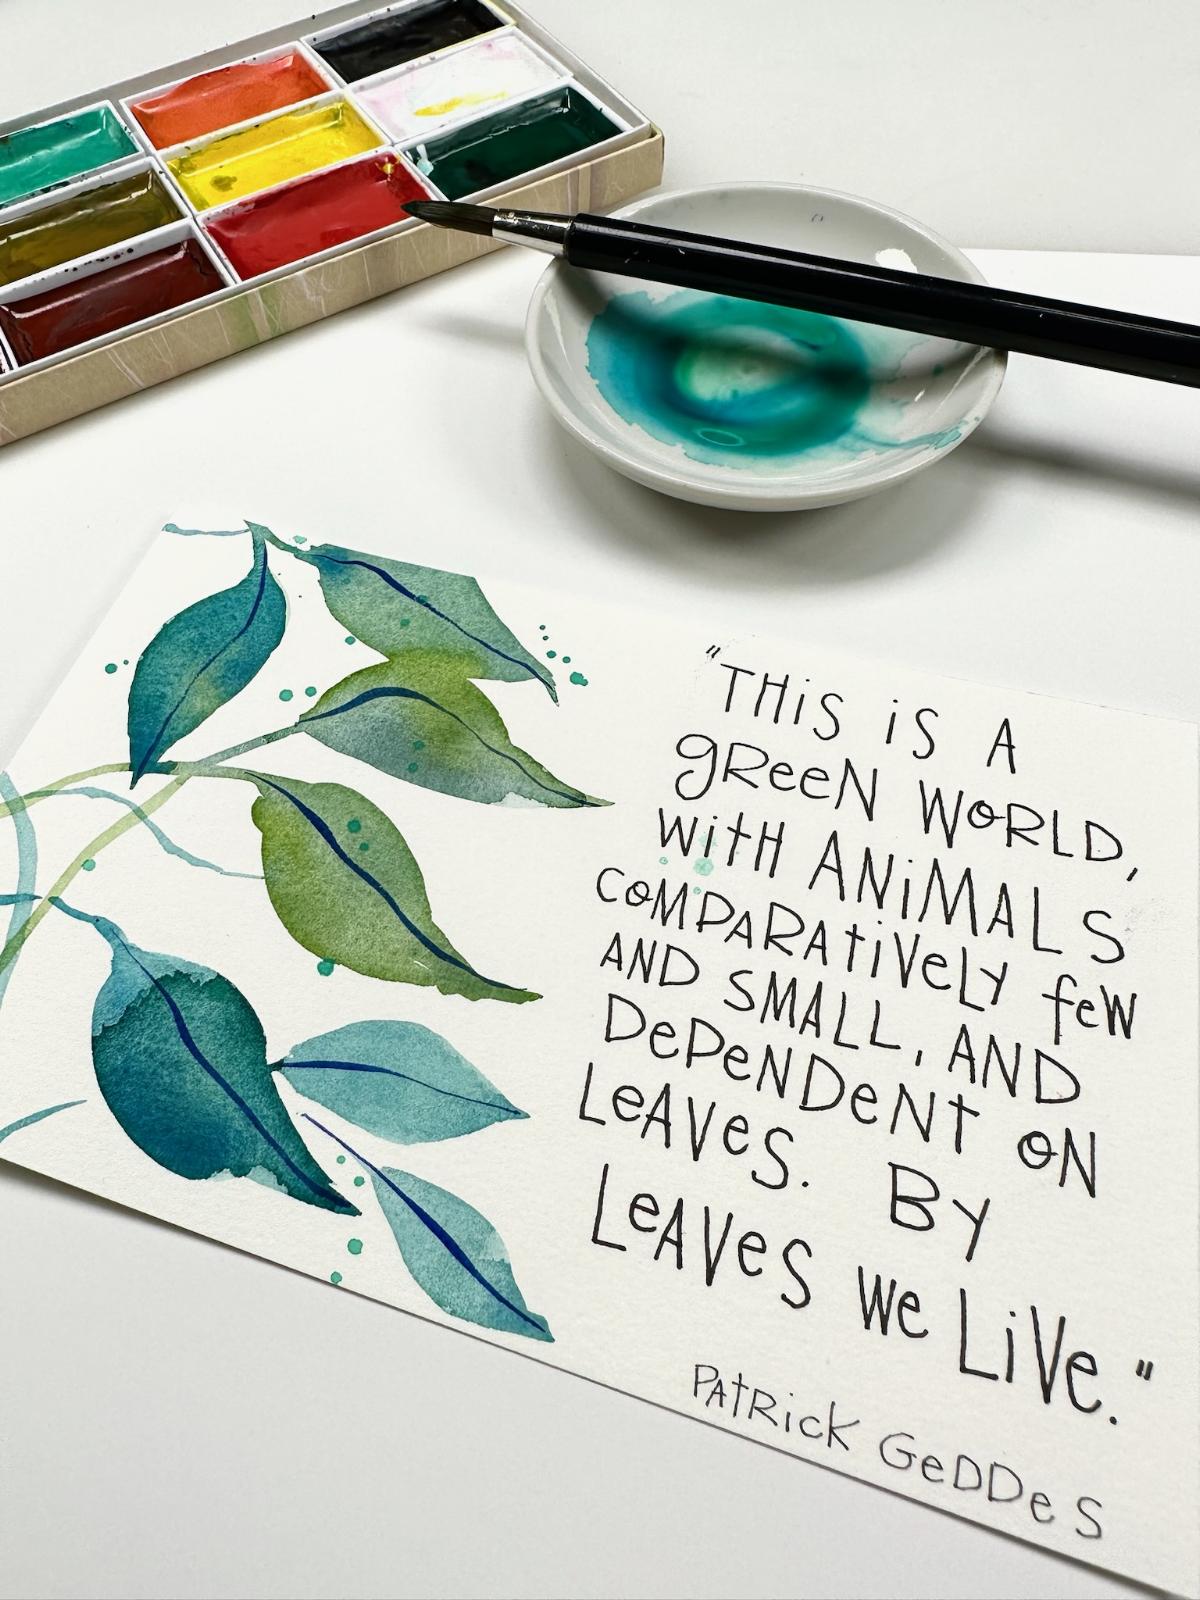 "THiS iS A
gReeN WoRLD,
WitH ANiMALS
CoMPARAtiVeLY feW
AND SMALL, AND
DePeNDeNt oN
LeAVeS. BY
LeAVeS We LiVe."
PAtRicK GeDDeS